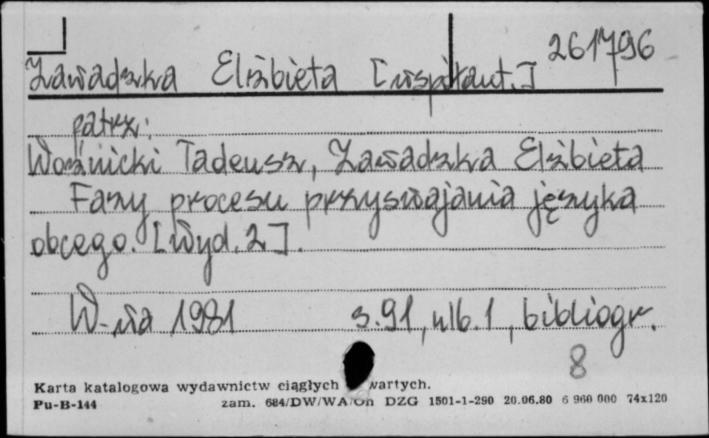 261796
Zawadzka Elżbieta [współaut.]
patrz:
Woźnicki Tadeusz, Zawadzka Elżbieta
Fazy procesu przyswajania języka
obcego. [Wyd. 2].
W-wa 1981 s. 91, nlb. 1, bibliogr.
8
Karta katalogowa wydawnictw ciągłych wartych.
Pu-B-144 zam. 684/DW/WA/On DZG 1501-1-290 20.06.80 6 960 000 74x120